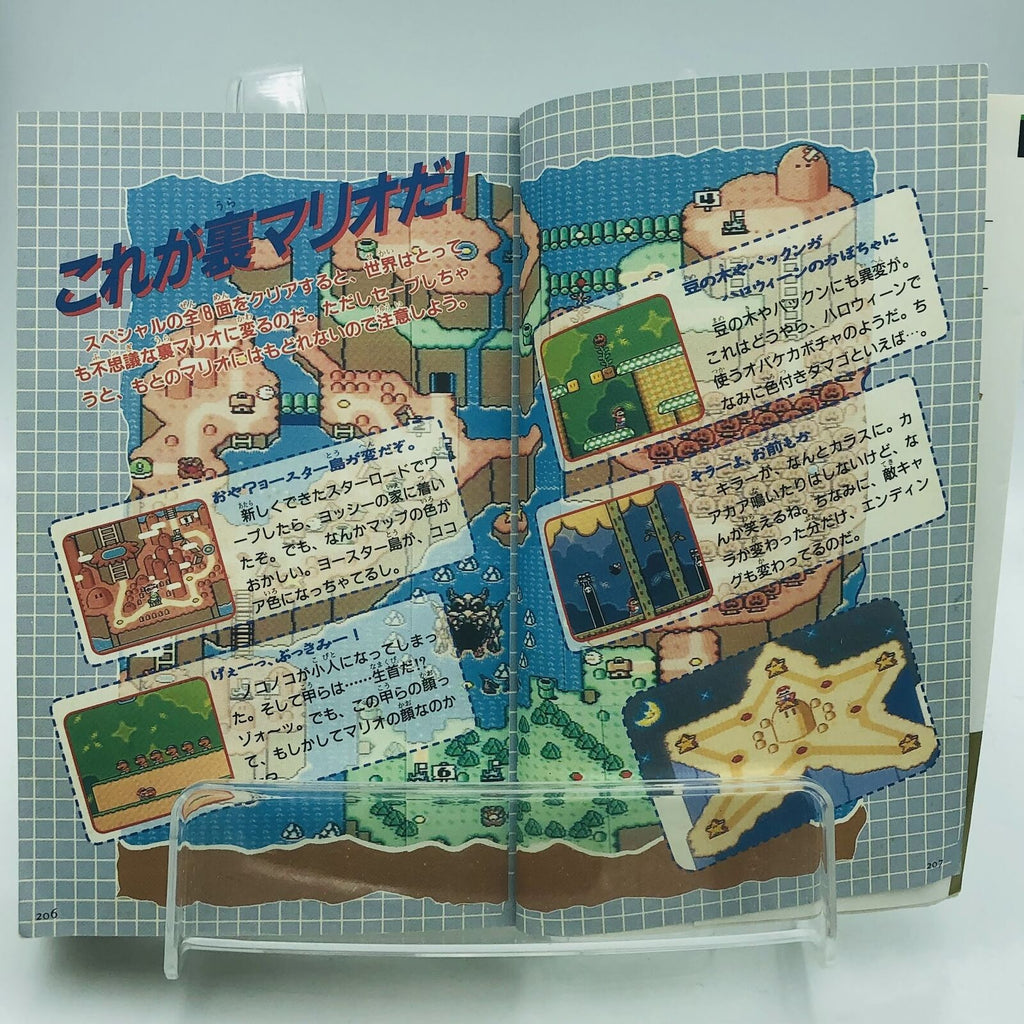 これが裏マリオだ!
スペシャルの全8面をクリアすると、世界はとって
も不思議な裏マリオに変るのだ。ただしセーブしちゃ
うと、もとのマリオにはもどれないので注意しよう。
おやァヨースター島が変だぞ。
新しくできたスターロードでワ
ープしたら、ヨッシーの家に着い
たぞ。でも、なんかマップの色が
おかしい。ヨースター島が、ココ
ア色になっちゃてるし。
げぇーっ、ぶっきみー!
ノコノコが小人になってしまっ
た。そして甲らは……生首だ!?
ゾォ〜ッ。でも、この甲らの顔っ
て、もしかしてマリオの顔なのか
206
豆の木やパックンが
ハロウィーンのかぼちゃに
豆の木やパックンにも異変が。
これはどうやら、ハロウィーンで
使うオバケカボチャのようだ。ち
なみに色付きタマゴといえば…。
キラーよ、お前もか
キラーが、なんとカラスに。カ
アカア鳴いたりはしないけど、な
んか笑えるね。ちなみに、敵キャ
ラが変わった分だけ、エンディン
グも変わってるのだ。
4
6
207